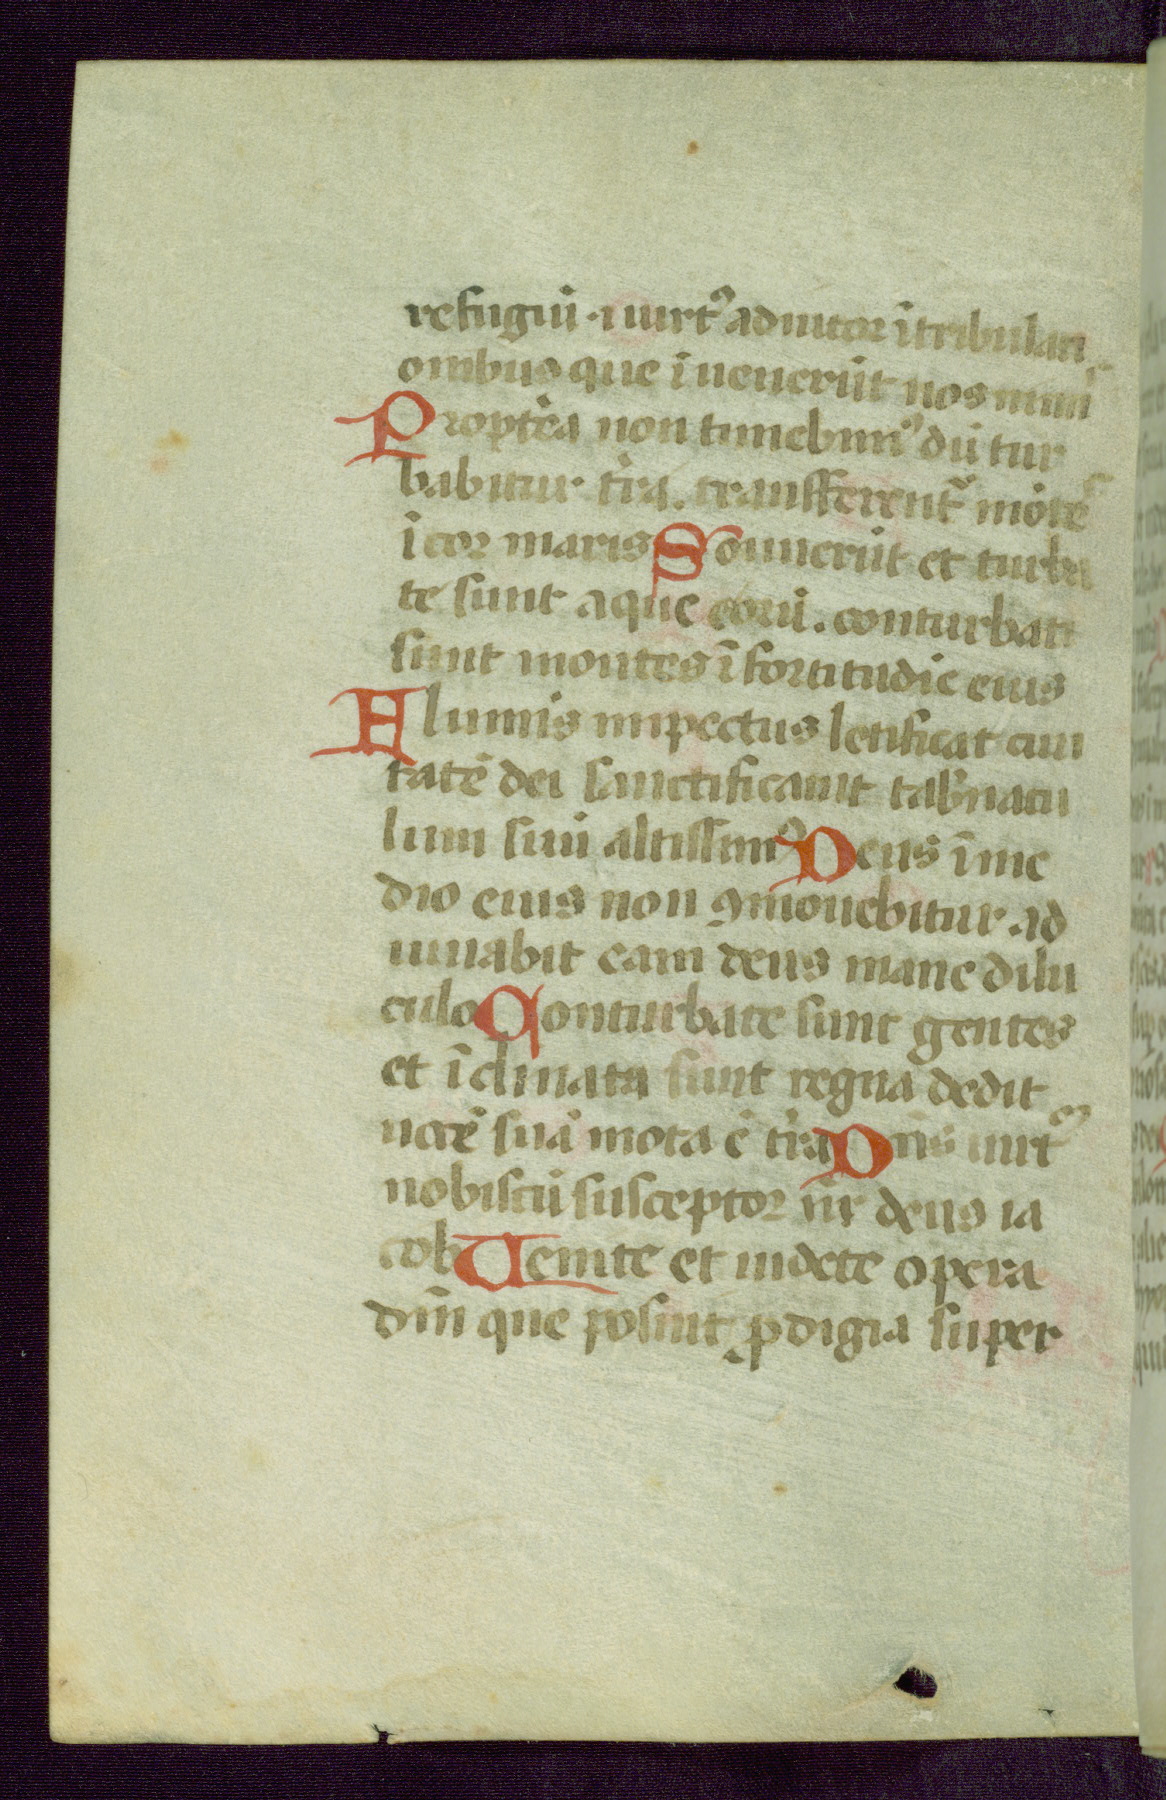 refugiū · ⁊ uirt᷒ adiutor ī tribulati
onibus que īuenerūt nos nimi
Propt̄ea non timebim᷒ dū tur
babitur t̄ra. transferent᷑ mōtes
ī cor maris Sonuerūt et turba
te sunt aque eorū. conturbati
sunt montes ī fortitudīe eius
Fluminis impectus letificat ciui
tatē dei sanctificauit tab̄nacu
lum suū altissim᷒ Deus ī me
dio eius non ꝯmouebitur. ad
iuuabit eam deus mane dilu
culo Conturbate sunt gentes
et īclinata sunt regna dedit
uocē suā mota ē t̄ra Dn̄s uirt᷒
nobiscū susceptor nr̄ deus ia
cob Uenite et uidete opera
dn̄i que posuit ꝓdigia super